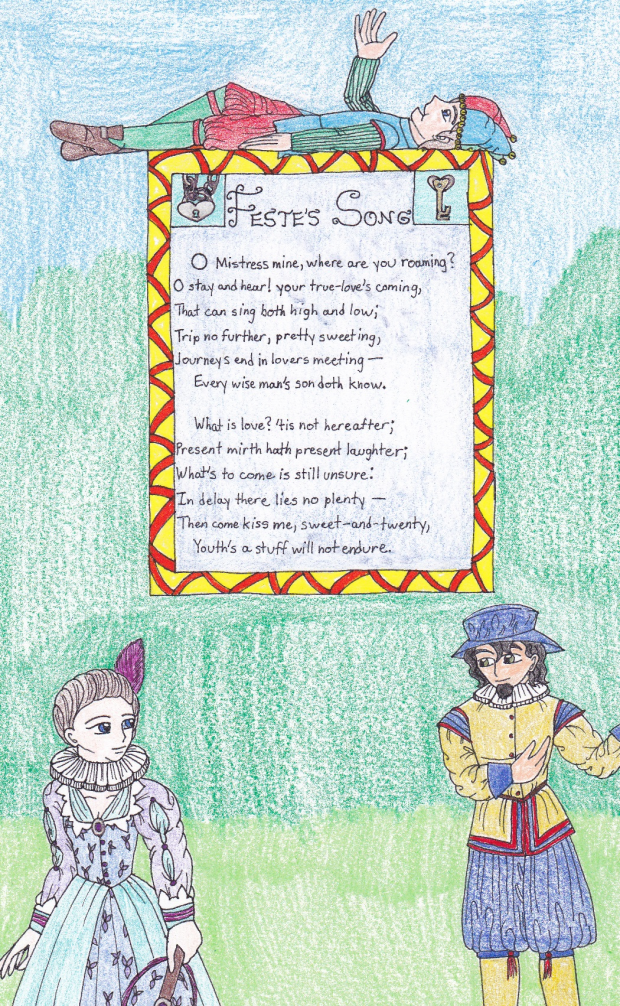 FESTE'S SONG
O Mistress mine, where are you roaming?
O stay and hear! your true-love's coming,
That can sing both high and low;
Trip no further, pretty sweeting,
Journeys end in lovers meeting —
Every wise man's son doth know.
What is love? 'tis not hereafter;
Present mirth hath present laughter;
What's to come is still unsure:
In delay there lies no plenty —
Then come kiss me, sweet-and-twenty,
Youth's a stuff will not endure.